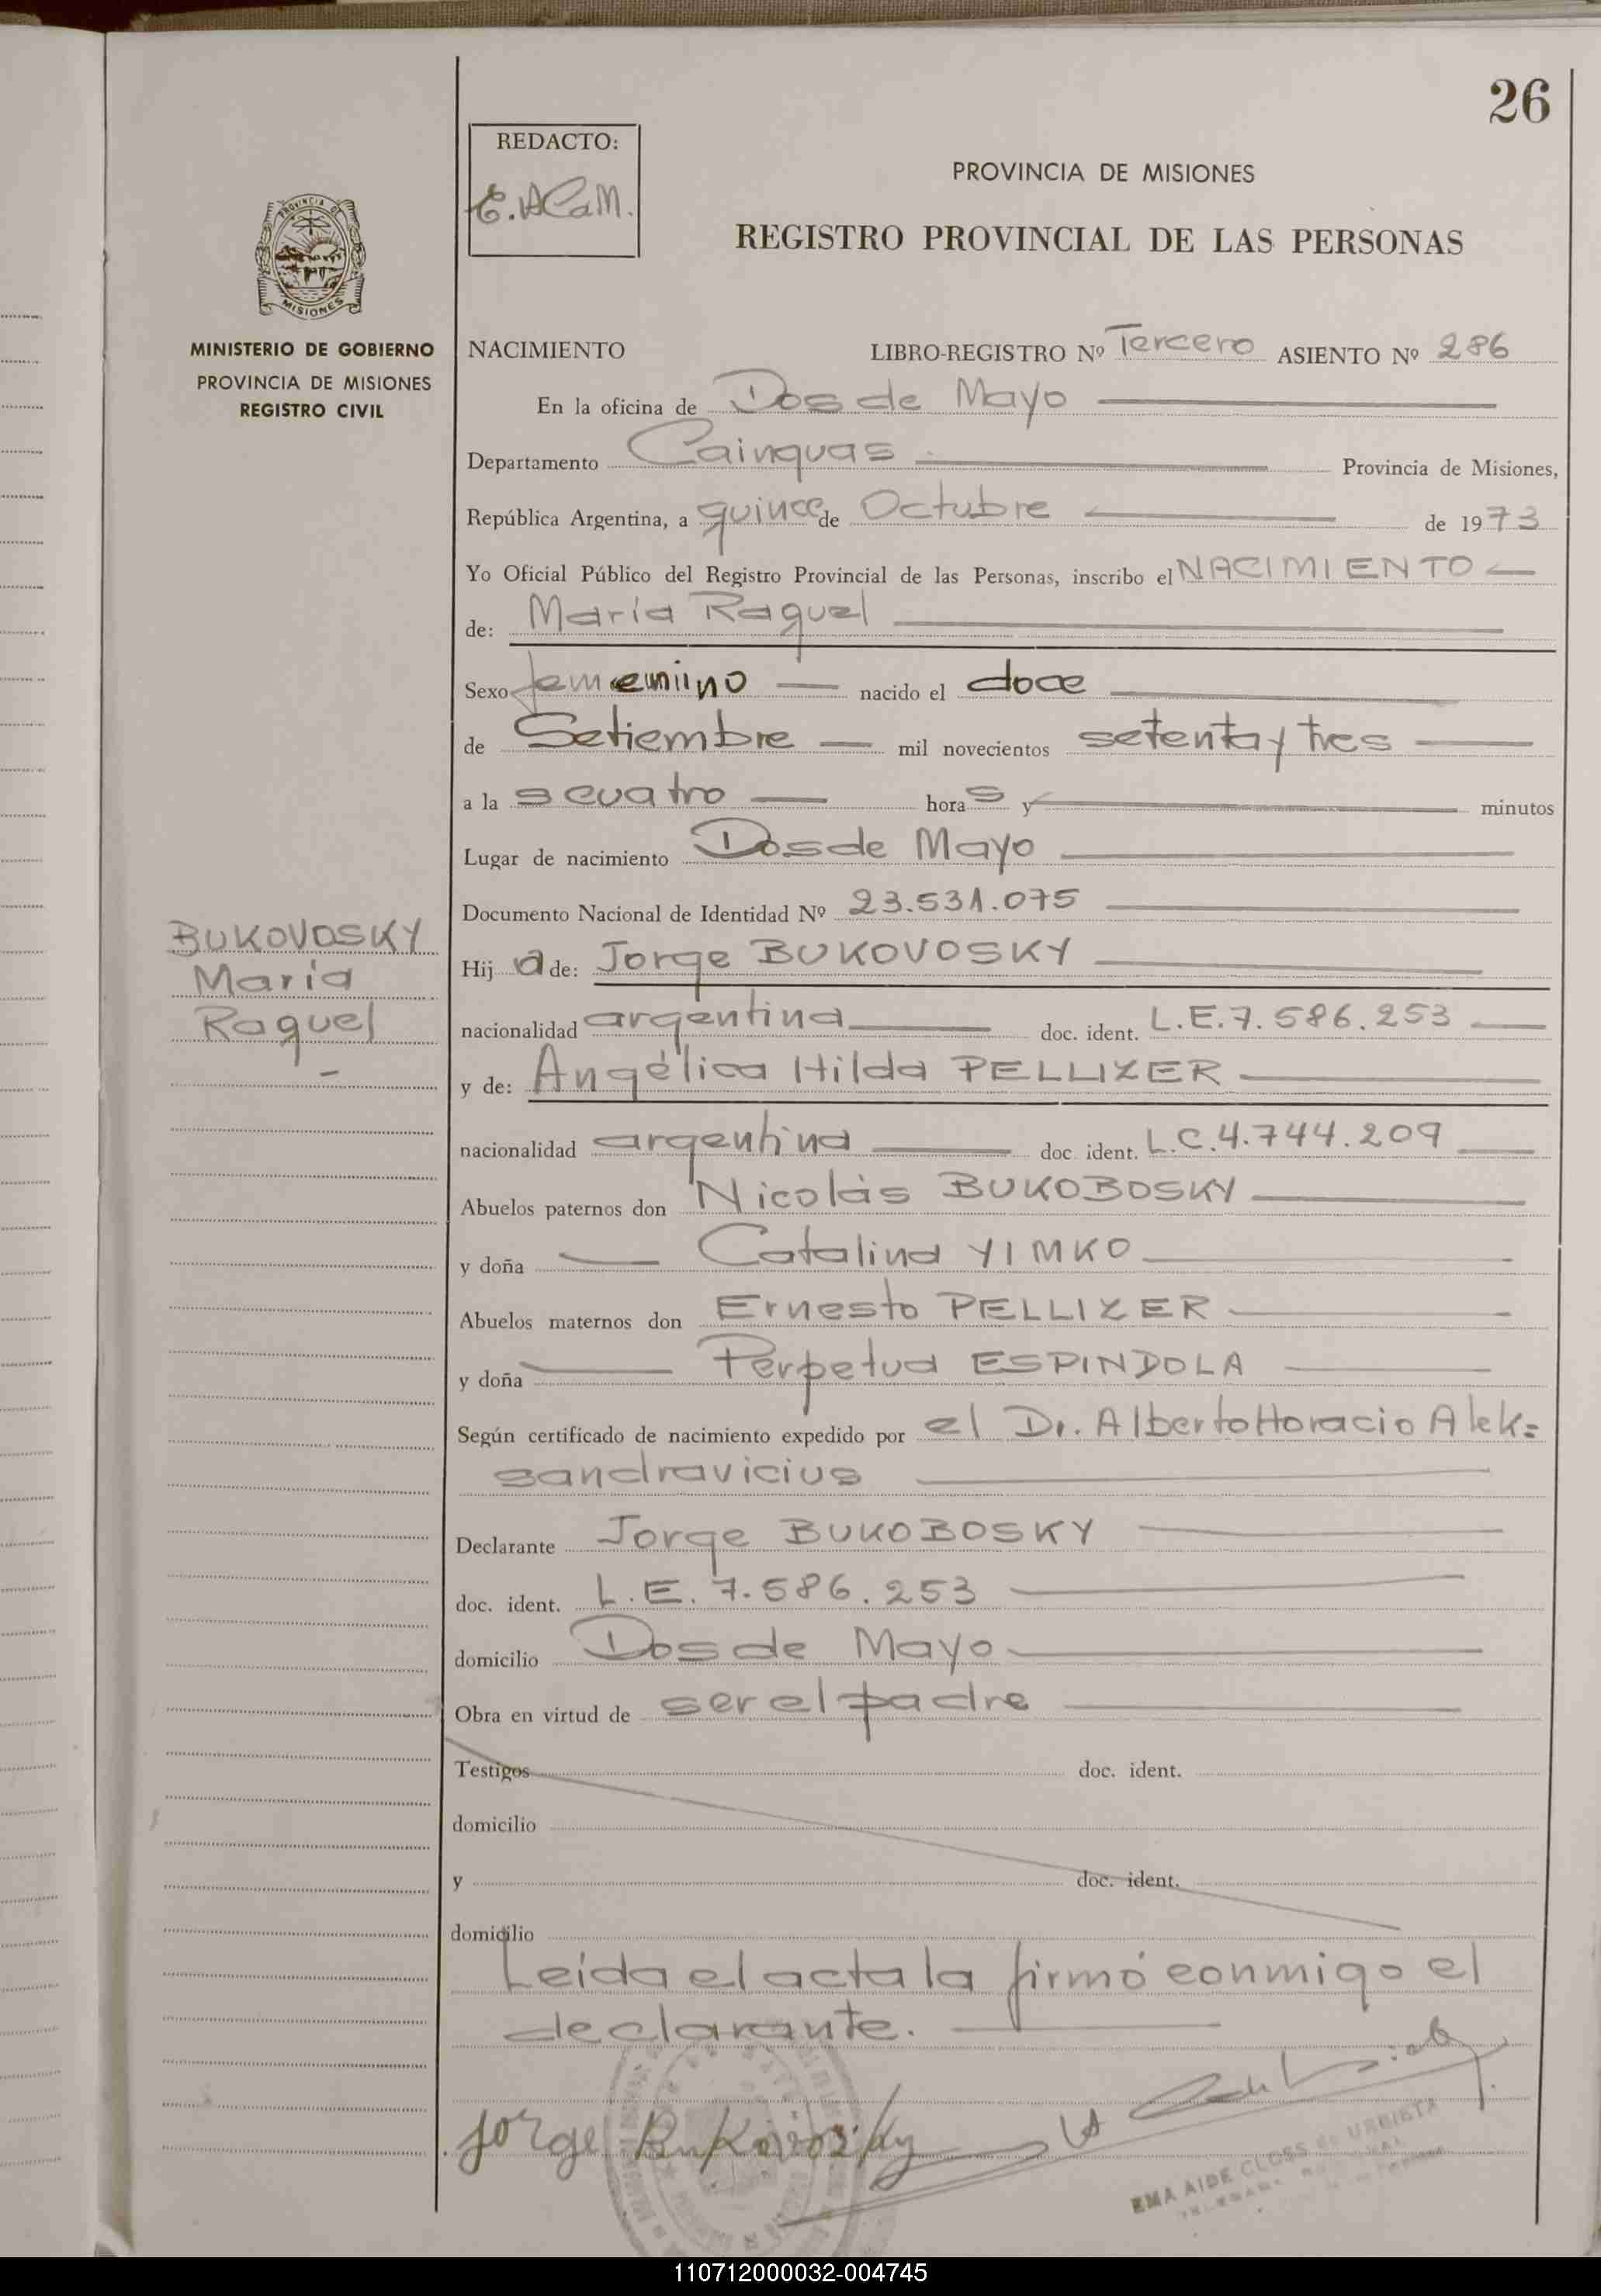 26
REDACTO:
E. ACaM.
PROVINCIA DE MISIONES
REGISTRO PROVINCIAL DE LAS PERSONAS
PROVINCIA DE
MISIONES
MINISTERIO DE GOBIERNO
PROVINCIA DE MISIONES
REGISTRO CIVIL
NACIMIENTO LIBRO-REGISTRO Nº Tercero ASIENTO Nº 286
En la oficina de Dos de Mayo
Departamento Cainguas Provincia de Misiones,
República Argentina, a quince de Octubre de 1973
Yo Oficial Público del Registro Provincial de las Personas, inscribo el NACIMIENTO
de: María Raquel
Sexo femenino nacido el doce
de Setiembre mil novecientos setenta y tres
a la s cuatro hora s y minutos
Lugar de nacimiento Dos de Mayo
Documento Nacional de Identidad Nº 23.531.075
BUKOVOSKY
María
Raquel
Hij a de: Jorge BUKOVOSKY
nacionalidad argentina doc. ident. L.E. 7.586.253
y de: Angélica Hilda PELLIZER
nacionalidad argentina doc ident. L.C. 4.744.209
Abuelos paternos don Nicolás BUKOBOSKY
y doña Catalina YIMKO
Abuelos maternos don Ernesto PELLIZER
y doña Perpetua ESPINDOLA
Según certificado de nacimiento expedido por el Dr. Alberto Horacio Alek=
sandravicius
Declarante Jorge BUKOBOSKY
doc. ident. L.E. 7.586.253
domicilio Dos de Mayo
Obra en virtud de ser el padre
Testigos doc. ident.
domicilio
y doc. ident.
domicilio
Leída el acta la firmó conmigo el
declarante.
Jorge Bukovosky
EMA AIDE CLOSS de URBIETA
110712000032-004745